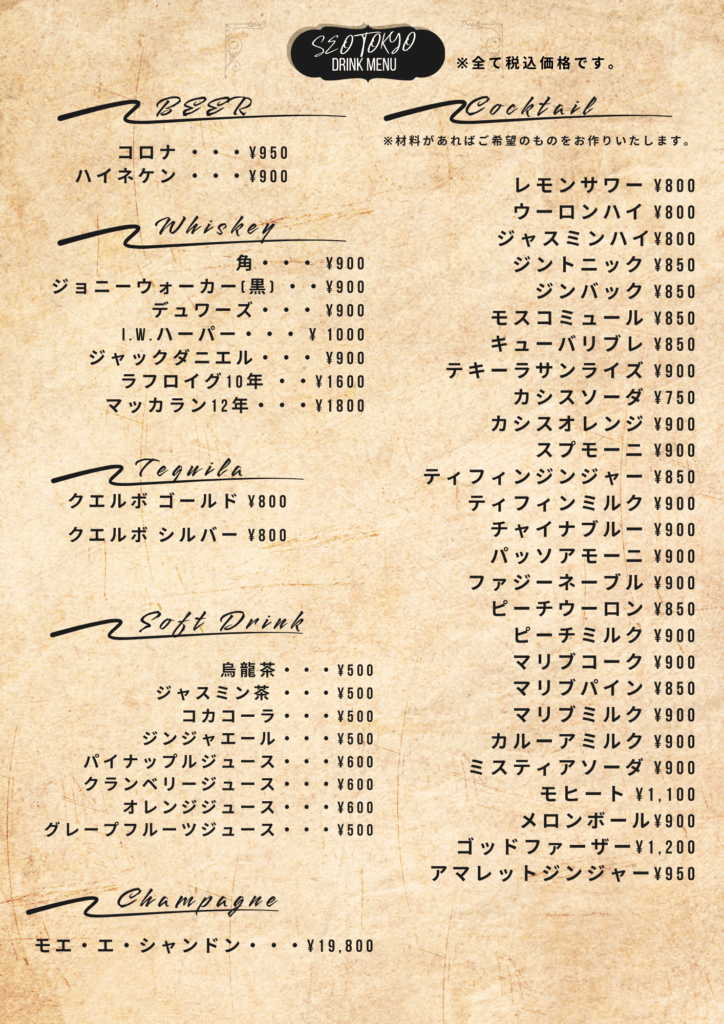 SEOTOKYO
DRINK MENU
※全て税込価格です。
BEER
コロナ ・・・¥950
ハイネケン ・・・¥900
Whiskey
角・・・ ¥900
ジョニーウォーカー(黒) ・・¥900
デュワーズ・・・ ¥900
I.W.ハーパー・・・ ¥ 1000
ジャックダニエル・・・ ¥900
ラフロイグ10年 ・・¥1600
マッカラン12年・・・¥1800
Tequila
クエルボ ゴールド ¥800
クエルボ シルバー ¥800
Soft Drink
烏龍茶・・・¥500
ジャスミン茶 ・・・¥500
コカコーラ・・・¥500
ジンジャエール・・・¥500
パイナップルジュース・・・¥600
クランベリージュース・・・¥600
オレンジジュース・・・¥600
グレープフルーツジュース・・・¥500
Champagne
モエ・エ・シャンドン・・・¥19,800
Cocktail
※材料があればご希望のものをお作りいたします。
レモンサワー ¥800
ウーロンハイ ¥800
ジャスミンハイ¥800
ジントニック ¥850
ジンバック ¥850
モスコミュール ¥850
キューバリブレ ¥850
テキーラサンライズ ¥900
カシスソーダ ¥750
カシスオレンジ ¥900
スプモーニ ¥900
ティフィンジンジャー ¥850
ティフィンミルク ¥900
チャイナブルー ¥900
パッソアモーニ ¥900
ファジーネーブル ¥900
ピーチウーロン ¥850
ピーチミルク ¥900
マリブコーク ¥900
マリブパイン ¥850
マリブミルク ¥900
カルーアミルク ¥900
ミスティアソーダ ¥900
モヒート ¥1,100
メロンボール¥900
ゴッドファーザー¥1,200
アマレットジンジャー¥950